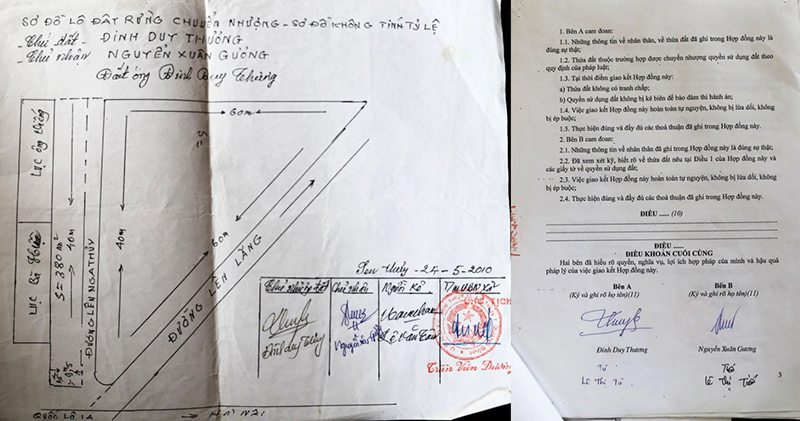 SƠ ĐỒ LÔ ĐẤT RỪNG CHUYỂN NHƯỢNG - SƠ ĐỒ KHÔNG TÍNH TỶ LỆ
- Chủ đất - ĐINH DUY THƯƠNG
- Chủ nhận NGUYỄN XUÂN GƯƠNG
Đất ông Đinh Duy Thương
60m
S=
40m
60m
ĐƯỜNG LÊN LĂNG
ĐƯỜNG LÊN NGA THỦY
40m
S=380m²
QUỐC LỘ 1A
24-5-2010
Chủ nhận
Đinh Duy Thương
CHỦ TỊCH
Trần Văn Dương
1. Bên A cam đoan:
1.1. Những thông tin về nhân thân, về thửa đất đã ghi trong Hợp đồng này là
đúng sự thật;
1.2. Thửa đất thuộc trường hợp được chuyển nhượng quyền sử dụng đất theo
quy định của pháp luật;
1.3. Tại thời điểm giao kết Hợp đồng này:
a) Thửa đất không có tranh chấp;
b) Quyền sử dụng đất không bị kê biên để bảo đảm thi hành án;
1.4. Việc giao kết Hợp đồng này hoàn toàn tự nguyện, không bị lừa dối, không
bị ép buộc;
1.5. Thực hiện đúng và đầy đủ các thoả thuận đã ghi trong Hợp đồng này.
2. Bên B cam đoan:
2.1. Những thông tin về nhân thân đã ghi trong Hợp đồng này là đúng sự thật;
2.2. Đã xem xét kỹ, biết rõ về thửa đất nêu tại Điều 1 của Hợp đồng này và
các giấy tờ về quyền sử dụng đất;
2.3. Việc giao kết Hợp đồng này hoàn toàn tự nguyện, không bị lừa dối, không
bị ép buộc;
2.4. Thực hiện đúng và đầy đủ các thoả thuận đã ghi trong Hợp đồng này.
ĐIỀU ...... (10)
ĐIỀU ......
ĐIỀU KHOẢN CUỐI CÙNG
Hai bên đã hiểu rõ quyền, nghĩa vụ, lợi ích hợp pháp của mình và hậu quả
pháp lý của việc giao kết Hợp đồng này.
Bên A Bên B
(Ký và ghi rõ họ tên)(11) (Ký và ghi rõ họ tên)(11)
Đinh Duy Thương Nguyễn Xuân Gương
Tú
Lê Thị Tú Lê Thị
3